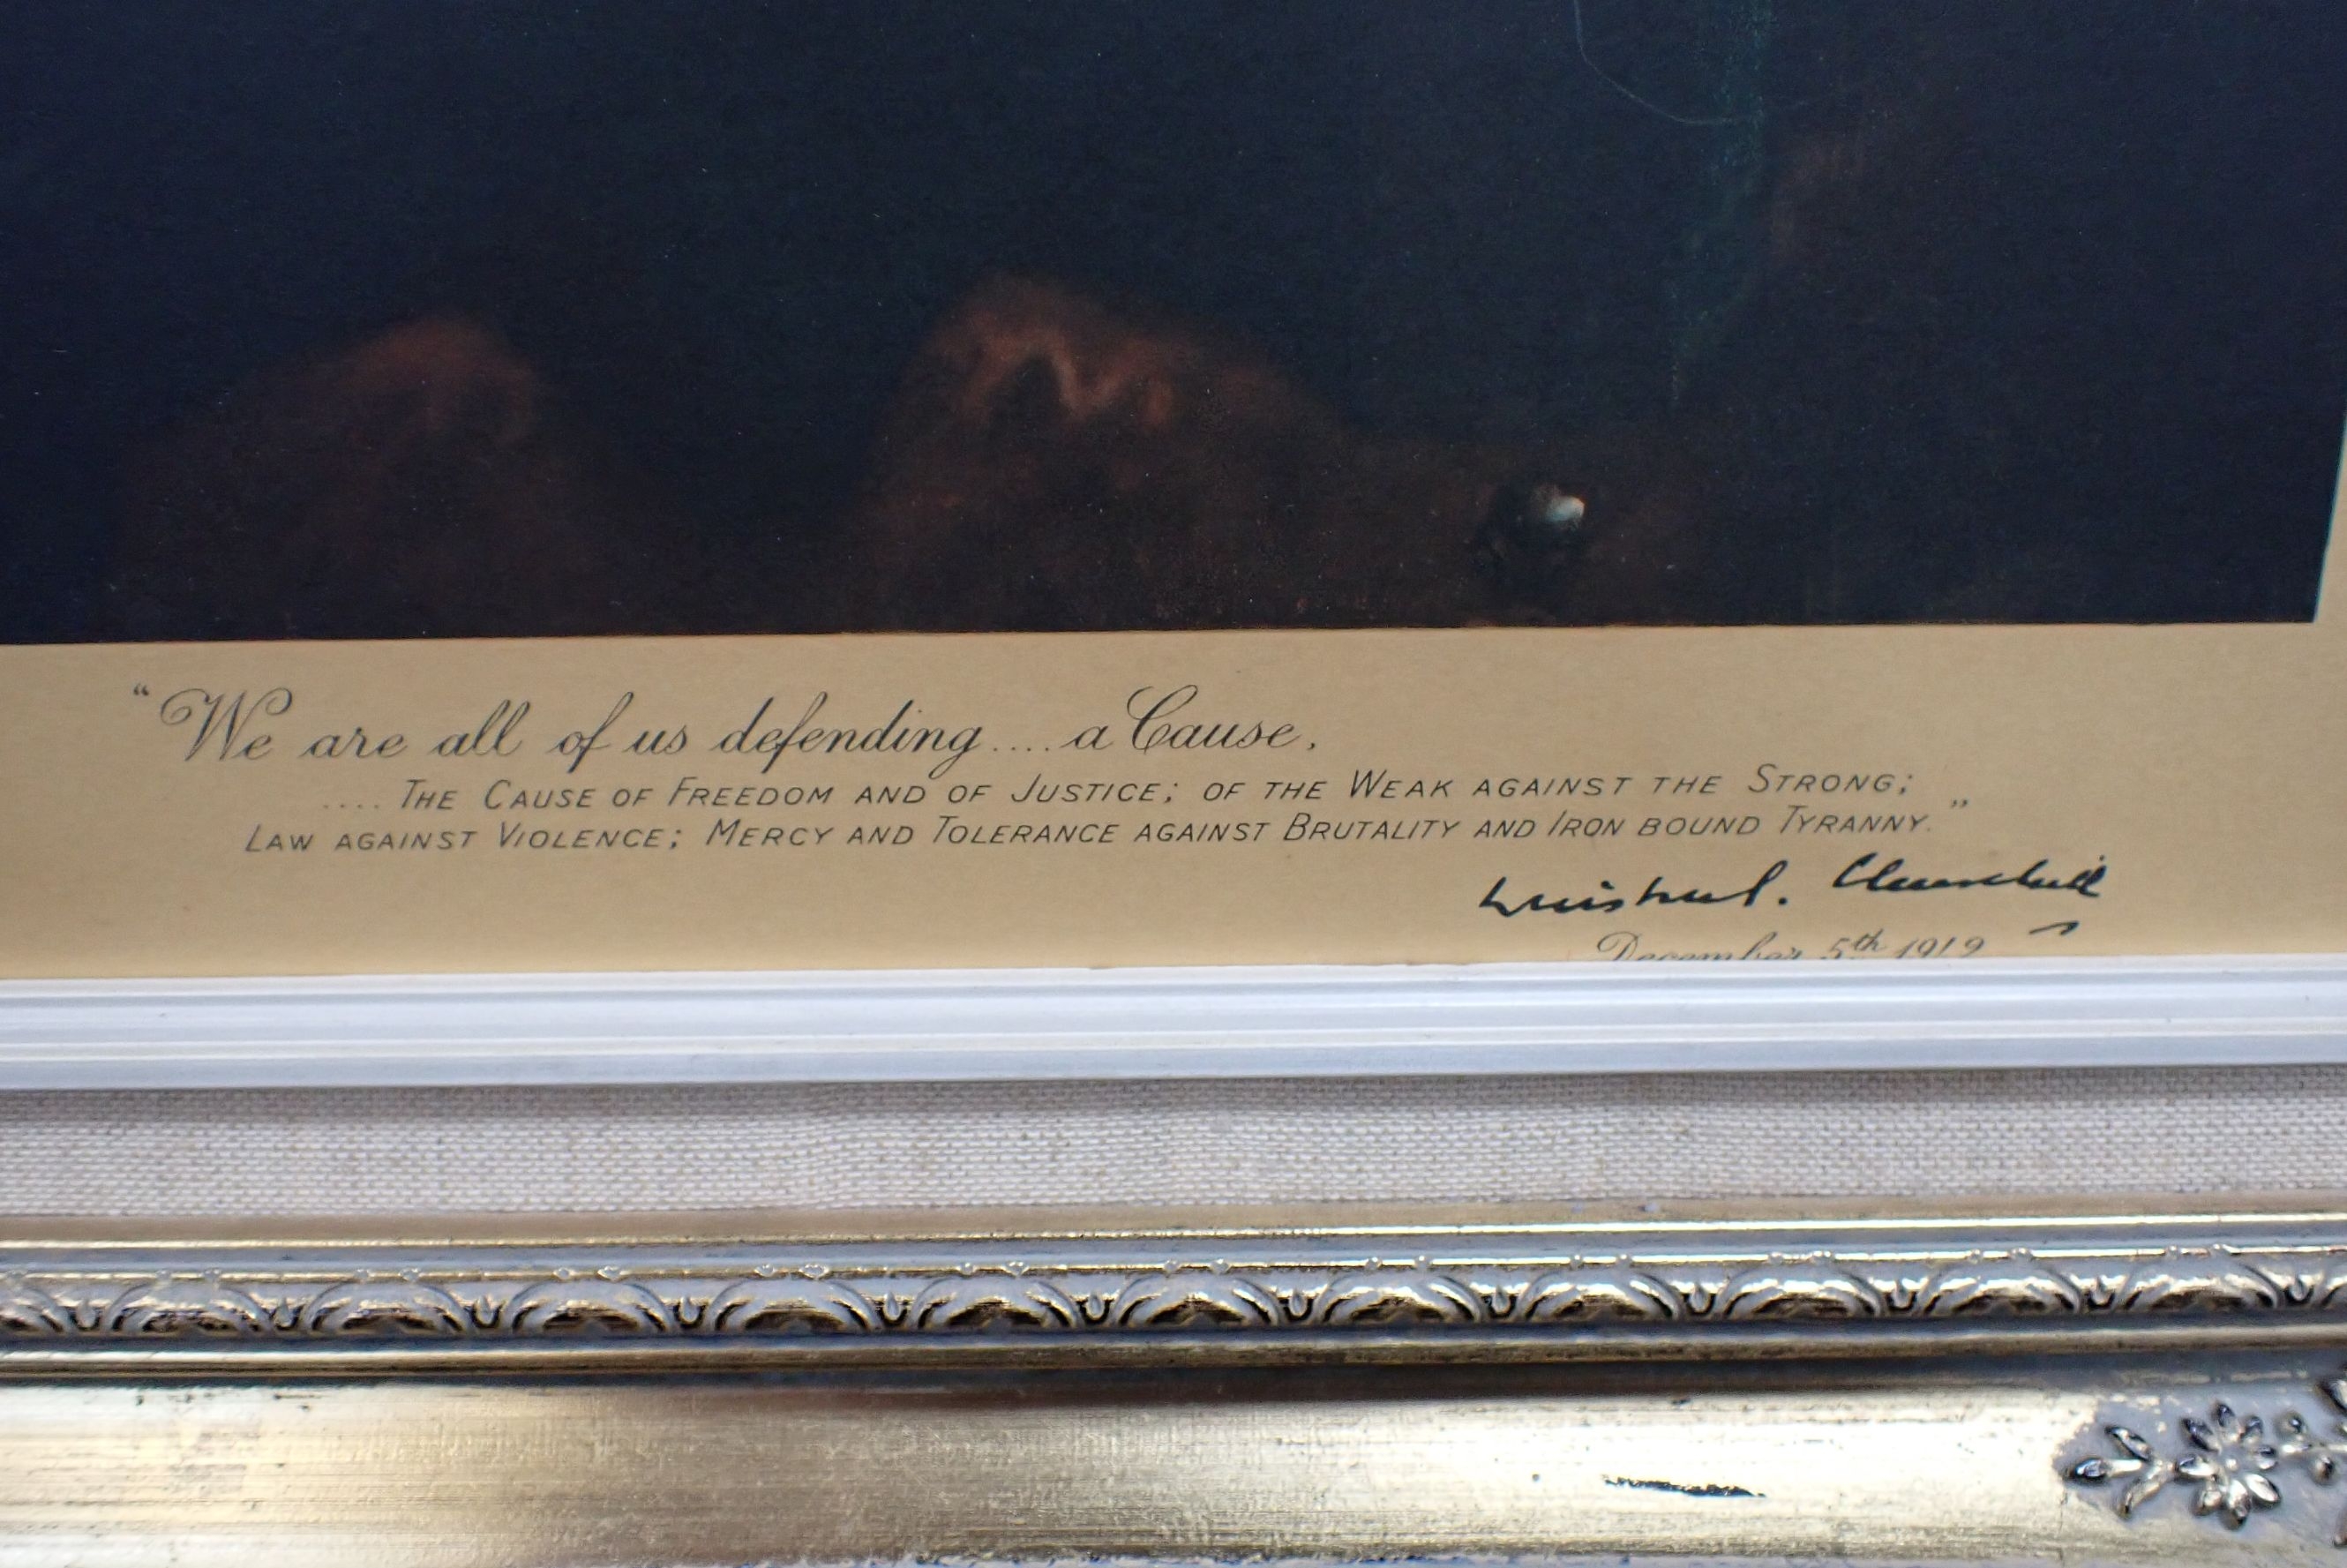 “We are all of us defending....a Cause,
....The Cause of Freedom and of Justice; of the Weak against the Strong;
Law against Violence; Mercy and Tolerance against Brutality and Iron bound Tyranny.”
Winston S. Churchill
December 5th 1919